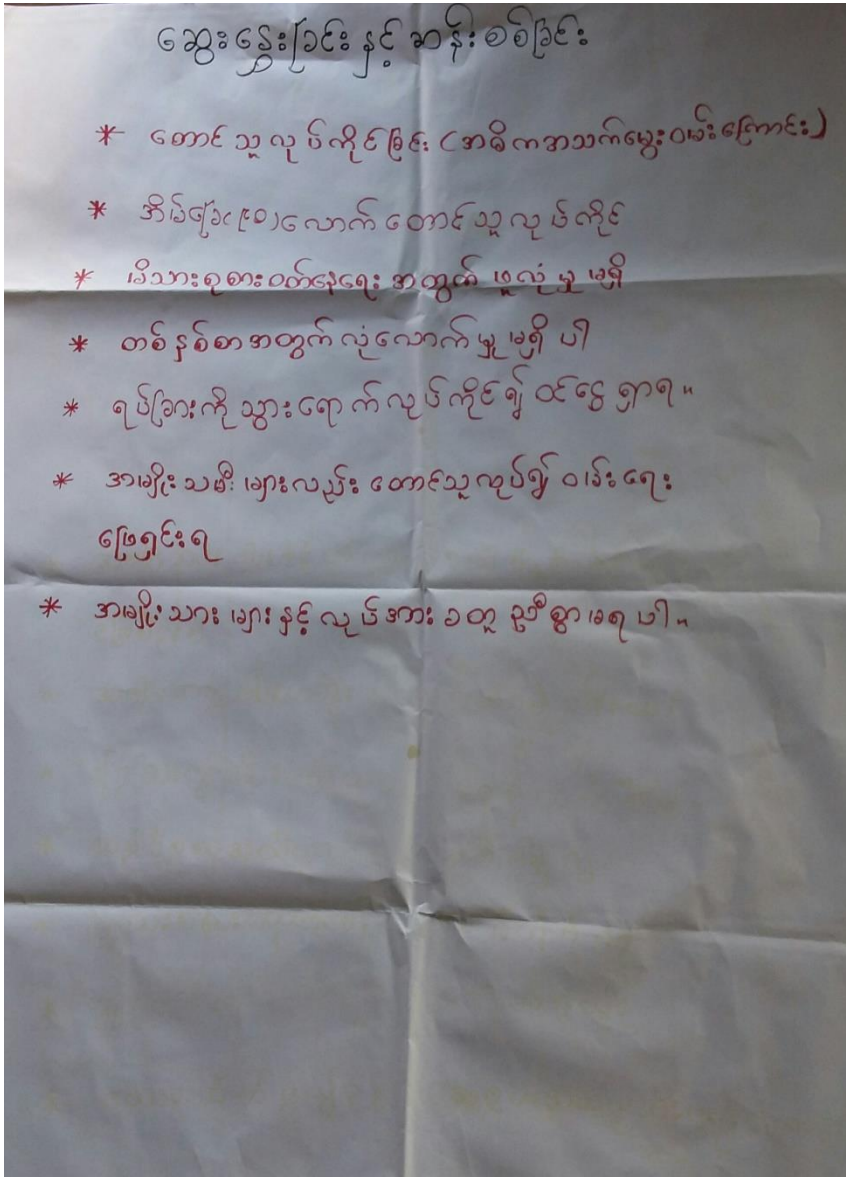 ဆွေးနွေးခြင်း နှင့် ဆန်းစစ်ခြင်း
* တောင်သူလုပ်ကိုင်ခြင်း (အဓိကအသက်မွေးဝမ်းကြောင်း)
* အိမ်ခြေ(၉၀)လောက် တောင်သူလုပ်ကိုင်
* မိသားစုစားဝတ်နေရေး အတွက် ဖူလုံမှု မရှိ
* တစ်နှစ်စာအတွက် လုံလောက်မှု မရှိပါ
* ရပ်ခြားကို သွားရောက်လုပ်ကိုင်၍ ဝင်ငွေရှာရ။
* အမျိုးသမီးများလည်း တောင်သူလုပ်၍ ဝမ်းရေး
ဖြေရှင်းရ
* အမျိုးသားများနှင့် လုပ်အားခတူညီစွာမရပါ။